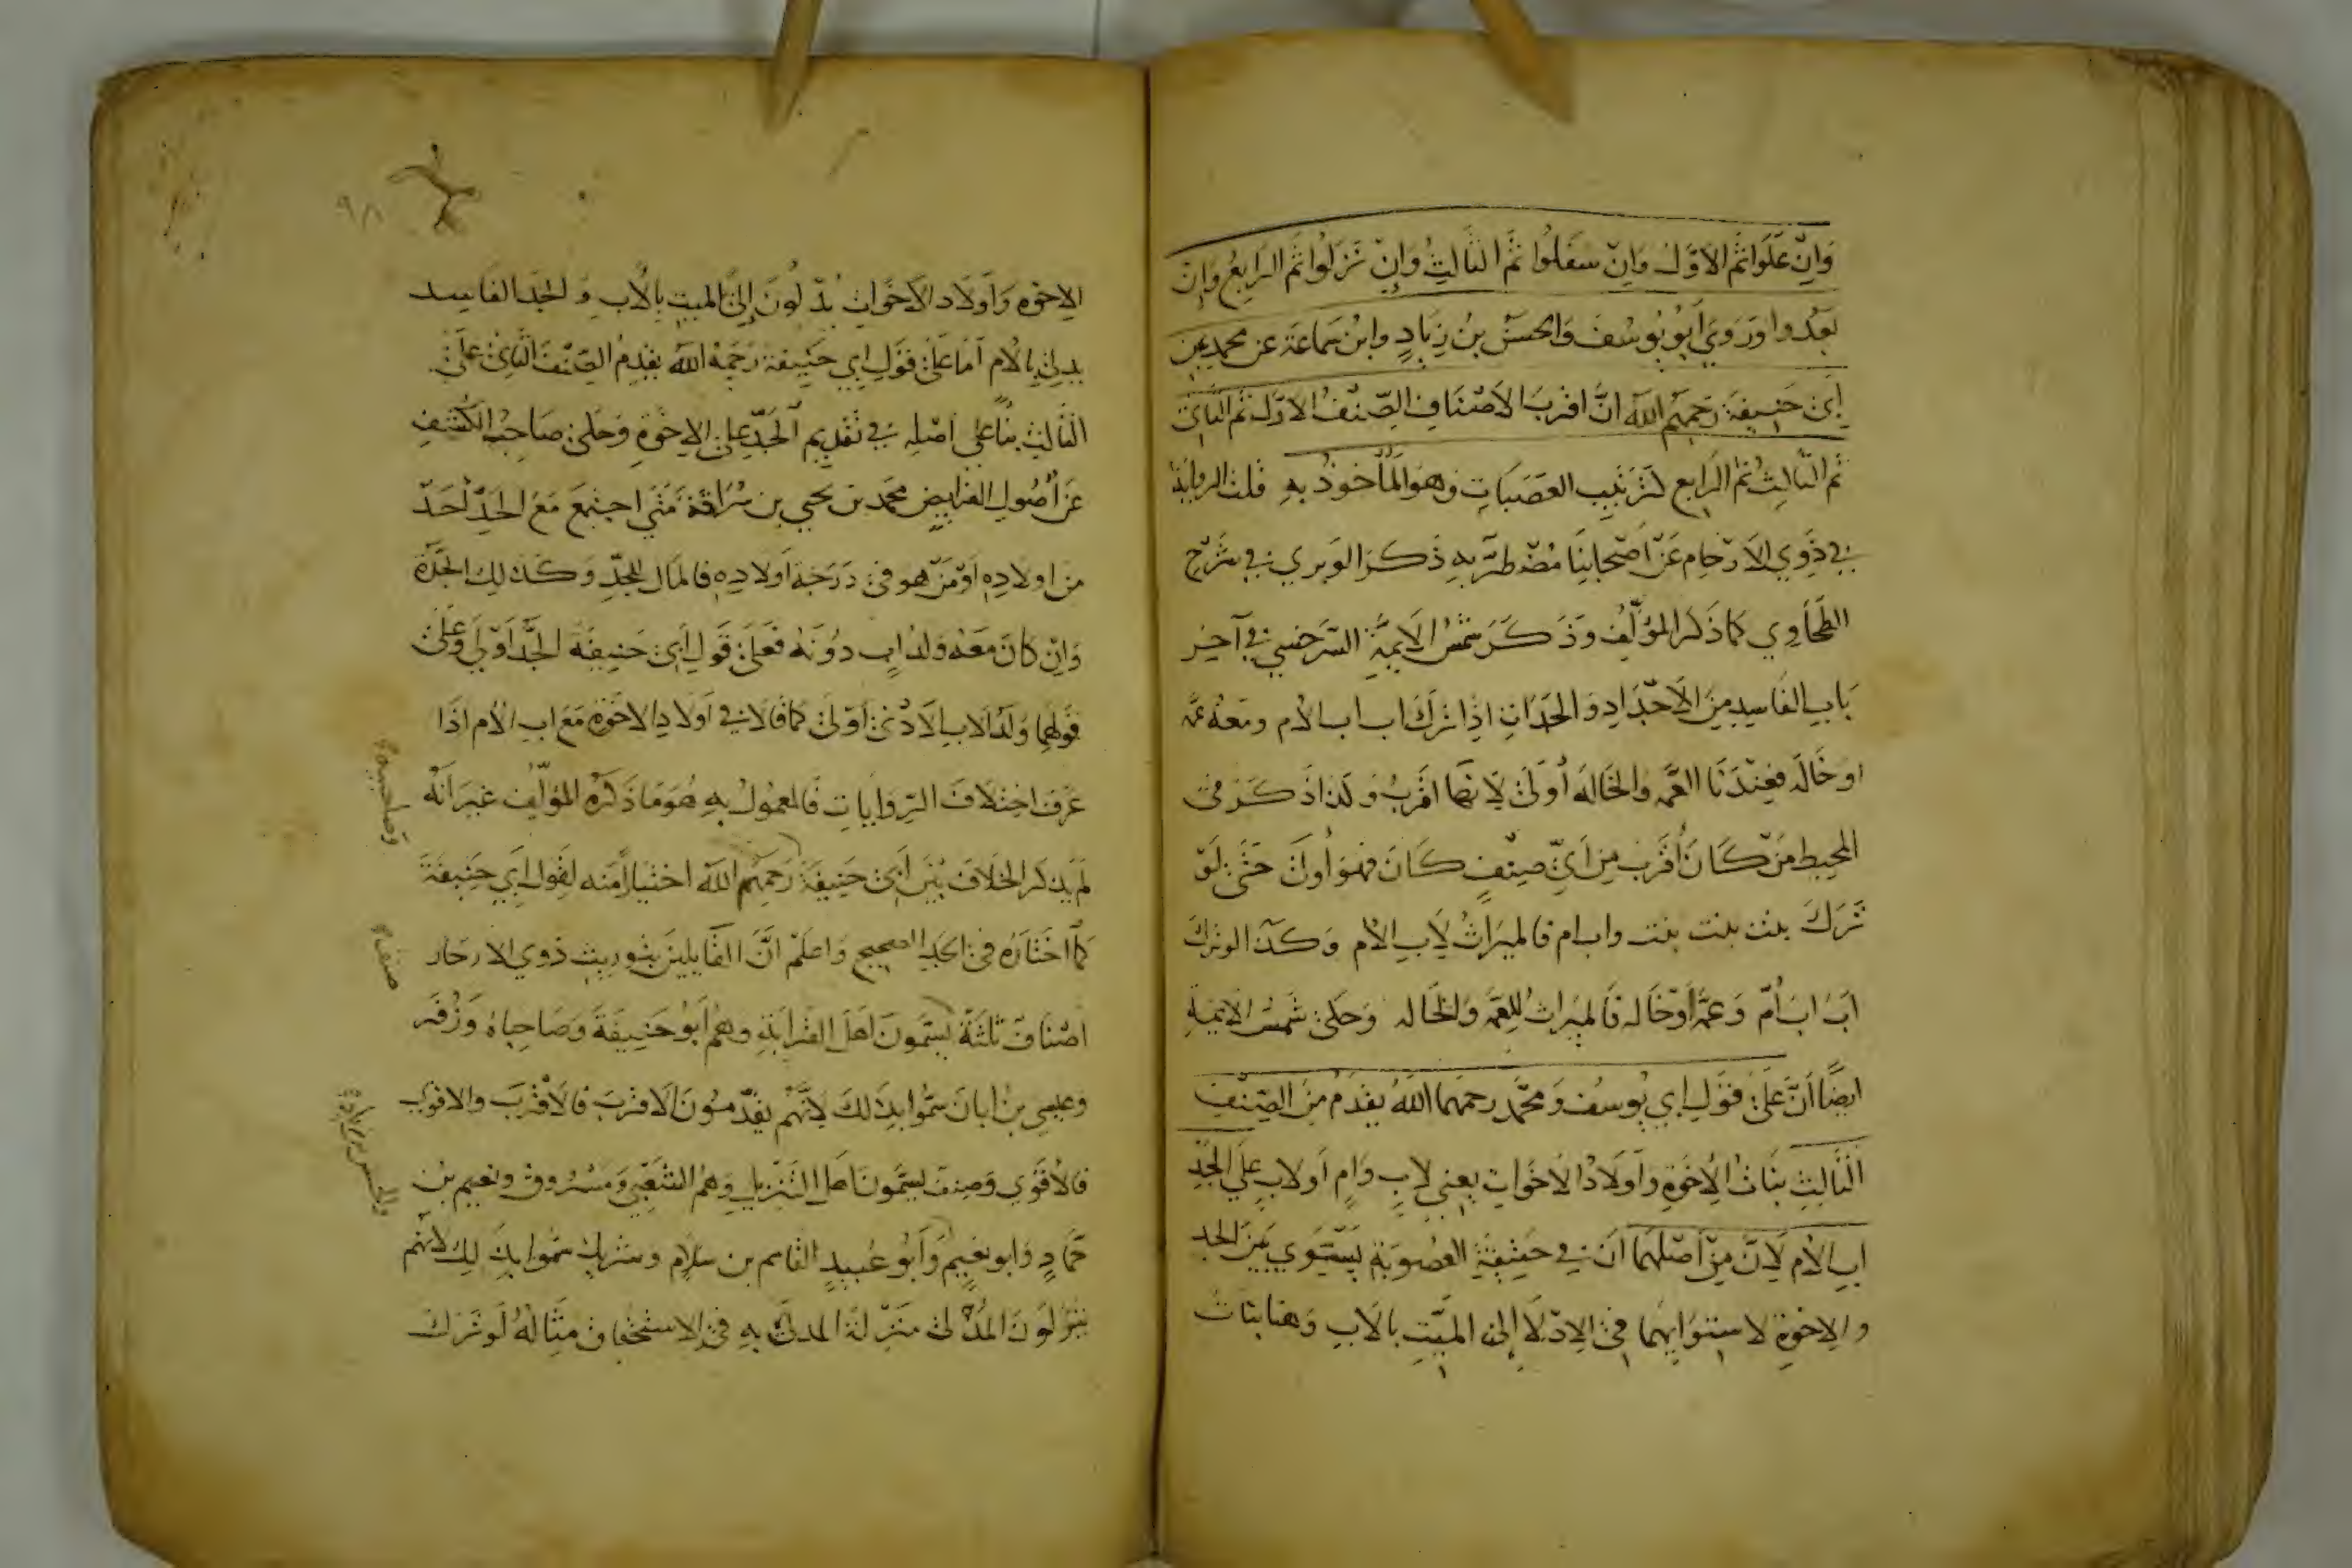 وَاِنْ عَلَوا ثُمَّ الاَوَّل وَاِنْ سَفَلُوا ثُمَّ الثَّالِثُ وَاِنْ نَزَلُوا ثُمَّ الرَّابِعُ وَاِنْ
بَعُدوا وَرَوَي اَبُو يُوسُفَ وَالحَسَنُ بنُ زِيَادٍ وابنُ سَمَاعَة عن محمد عن
اَبي حَنِيفَة رَحِمَهُم الله انَّ اقرَبَ الاَصْنَافِ الصِّنْفُ الاوّل ثم الثاني
ثم الثالِثُ ثمّ الرابع كتَرتيبِ العَصَبَاتِ وهوَ المَأخوذُ بهِ قلت الرواية
في ذَوِي الاَرْحَام عَن اَصْحَابِنَا مُضْطَرِبَةٌ ذكرَ الوبري في شرح
الطَّحَاوِي كما ذكر المؤلّفُ وَذَكَرَ شَمسُ الاَيمّةِ السَّرَخسي في آخِر
بَابِ الفَاسِدِ مِنَ الاَجْدَادِ وَالجَدَّاتِ اِذَا تركَ اب اب الاُم ومعهُ عمّة
او خَالَة فعِنْدَنَا العَمّة وَالخَالَةُ أولَى لاِنّهما اقرَبُ وَكذا ذكرَ في
المحِيط مَنْ كَانَ أقرَب مِن اَيِّ صِنْفٍ كَانَ فهوَ أولَى حَتّى لَوْ
تَرَكَ بنت بنت بنت واب ام فالميرَاثُ لِاَبِ الاُم وَكذا لو تركَ
ابَ ابَ اُمّ وَعمَّة اَوْ خَالة فَالميرَاثُ لِلعَمّةِ وَالخَالة وَحَكَى شَمسُ الايمةِ
ايضًا اَنَّ عَلَى قوَلِ ابي يُوسفَ وَمحَمّدٍ رحمهما اللهُ يقدّم مِنَ الصِّنْفِ
الثَّالِثِ بنَاتُ الاِخوَةِ وَاَولَادُ الاَخَوَاتِ يعني لابٍ وَامٍ اَو لابٍ علَى الجَدِّ
ابِ الاُم لِاَنَّ مِنْ اَصْلِهمَا اَنّ في حَقيقَةِ العُصُوبَةِ يَسْتَوِي بَينَ الجد
والاِخوةِ لاستِوَايهمَا في الاِدْلَا اِلى الميّتِ بالاَبِ وَهنا بنَات
الاِخوَه وَاَولَاد الاَخَوات يُدلُونَ اِلىَ الميت بالاَب وَ الجَد الفَاسِد
يدلي بالاُم اَمَا عَلَى قوَلِ ابي حَنِيفة رَحِمَهُ اللّهُ يقدِمُ الصِّنْفَ الثَّاني علَى
الثَّالِثِ بنَاءً على اَصْلهِ في تقدِيمِ الجَدّ علَى الاِخوةِ وَحَكَى صَاحِبُ الكَشفِ
عَن اُصُولِ الفرايِض محمد بن يحيى بن سُرَاقة مَتَى اجتمعَ مَعَ الجَدِّ اَحَدٌ
من اولادِهِ اَوْ مَنْ هو في دَرَجَة اَولادِهِ فالمَال للجَدِّ وَكَذلِكَ الجَدّةُ
وَاِن كَانَ مَعَهُ وَلَدُ ابٍ دوُنَهُ فَعَلَى قَولِ اَبي حَنِيفَةَ الجَدُّ اَوْلَى وَعلَى
قولهِمَا وَلَدُ الاَبِ الاَدْنى اَوْلَى كما قالا في اَولَادِ الاخوَةِ مَعَ ابِ الاُم اذَا
عَرفَ اختِلَافَ الرِّوَايَاتِ فَالمعمُولُ بهِ هُوَ مَا ذَكَرَهُ المؤلّف غيَر اَنّهُ
لم يَذكر الخلَافَ بَيْنَ اَبي حَنِيفَةَ رَحِمَهُم اللهُ اختيَارًا منه لقَولِ ابي حَنِيفَةَ
كما اختَارَهُ في الجَدِ الصحيح وَاعلَمْ انَّ القَايلِينَ بتَورِيثِ ذَوي الارحَام
اصْنَافٌ ثَلثَةٌ يُسَمّونَ اَهلَ القَرابَةِ وهُم اَبُو حَنِيفَةَ وَصَاحِبَاهُ وَزُفَر
وعيسي بن ابانَ سمّوا بذلكَ لاِنّهُم يقدّمونَ الاَقرَبَ فالاَقْرَبَ والاقوى
فالاَقوَي وَصنِف يسَمّونَ اهلَ التَّنْزِيلِ وَهُم الشَّعْبِي وَمَسْرُوق ونعيم بن
حَمّادٍ وَابو نعَيمٍ وَاَبُو عُبَيدٍ القَاسم بن سَلامٍ وشريك سُمّوا بذَلِكَ لانّهم
ينزِلُونَ المُدْلي مَنزِلةَ المدلَى بهِ في الاسْتحقاقِ مِثَالهُ لَو تَرَكَ
وصاحبيه
صنف